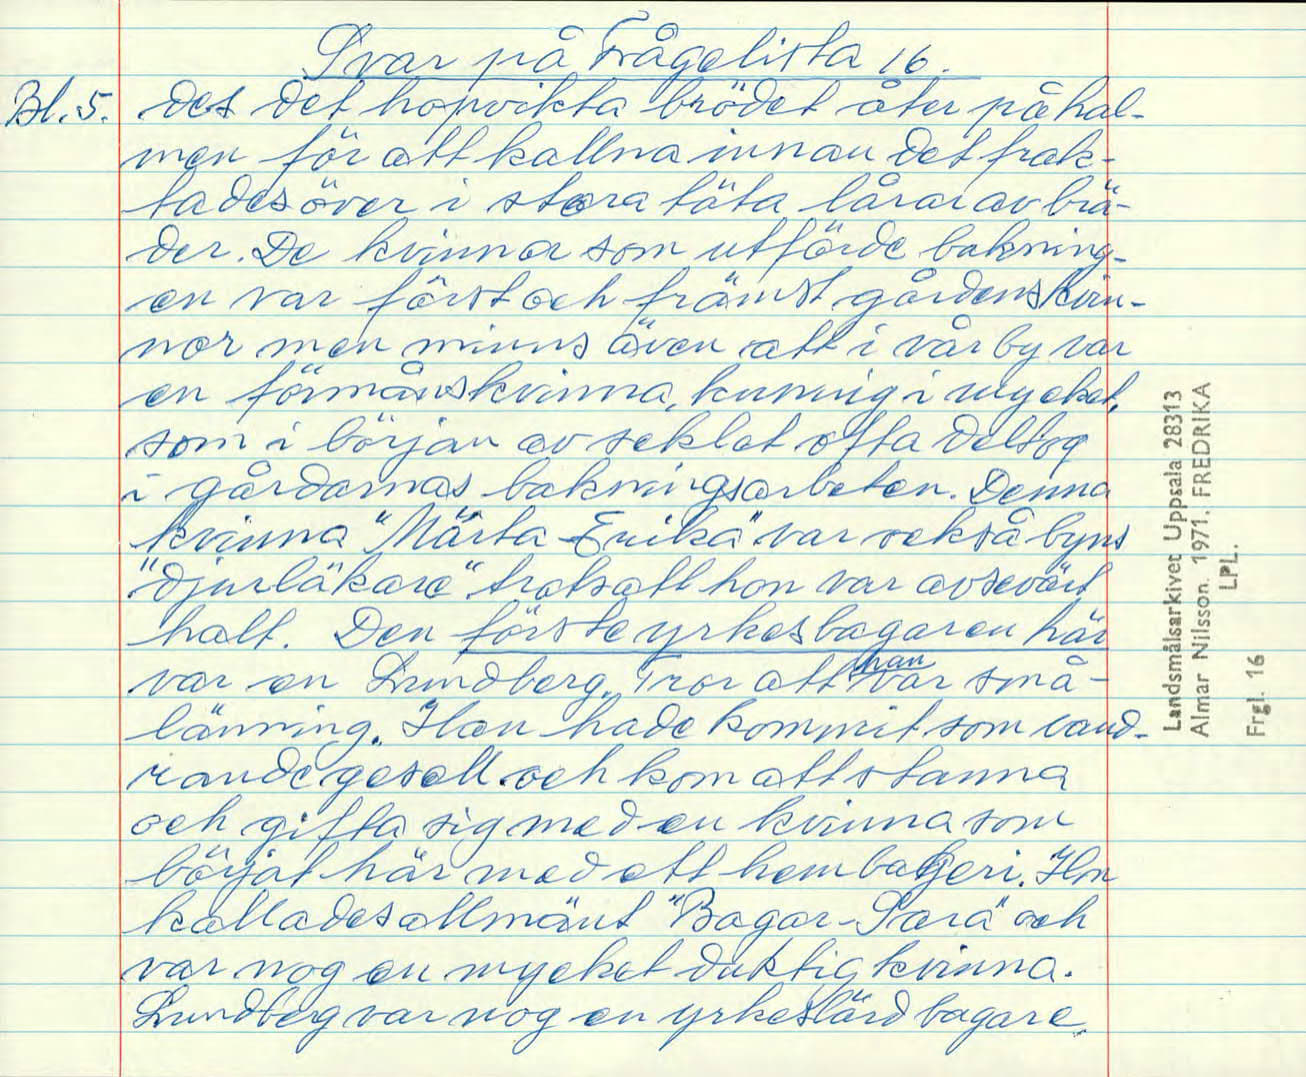 Svar på Frågelista 16.
Bl. 5. des det hopvikta brödet åter på hal-
men för att kallna innan det frak-
tades över i stora täta lårar av brä-
der. De kvinnor som utförde bakning-
en var först och främst gårdens kvin-
nor men minns även att i vår by var
en förmånskvinna, kunnig i mycket,
som i början av seklet ofta deltog
i gårdarnas bakningsarbeten. Denna
kvinna "Märta-Erika" var också byns
"djurläkare" trots att hon var avsevärt
halt. Den förste yrkesbagaren här
var en Lundberg. Tror att han var små-
länning. Han hade kommit som vand-
rande gesell och kom att stanna
och gifta sig med en kvinna som
börjat här med ett hembageri. Hon
kallades allmänt "Bagar-Sara" och
var nog en mycket duktig kvinna.
Lundberg var nog en yrkeslärd bagare
Landsmålsarkivet Uppsala 28313
Almar Nilsson. 1971. FREDRIKA
LPL.
Frgl. 16